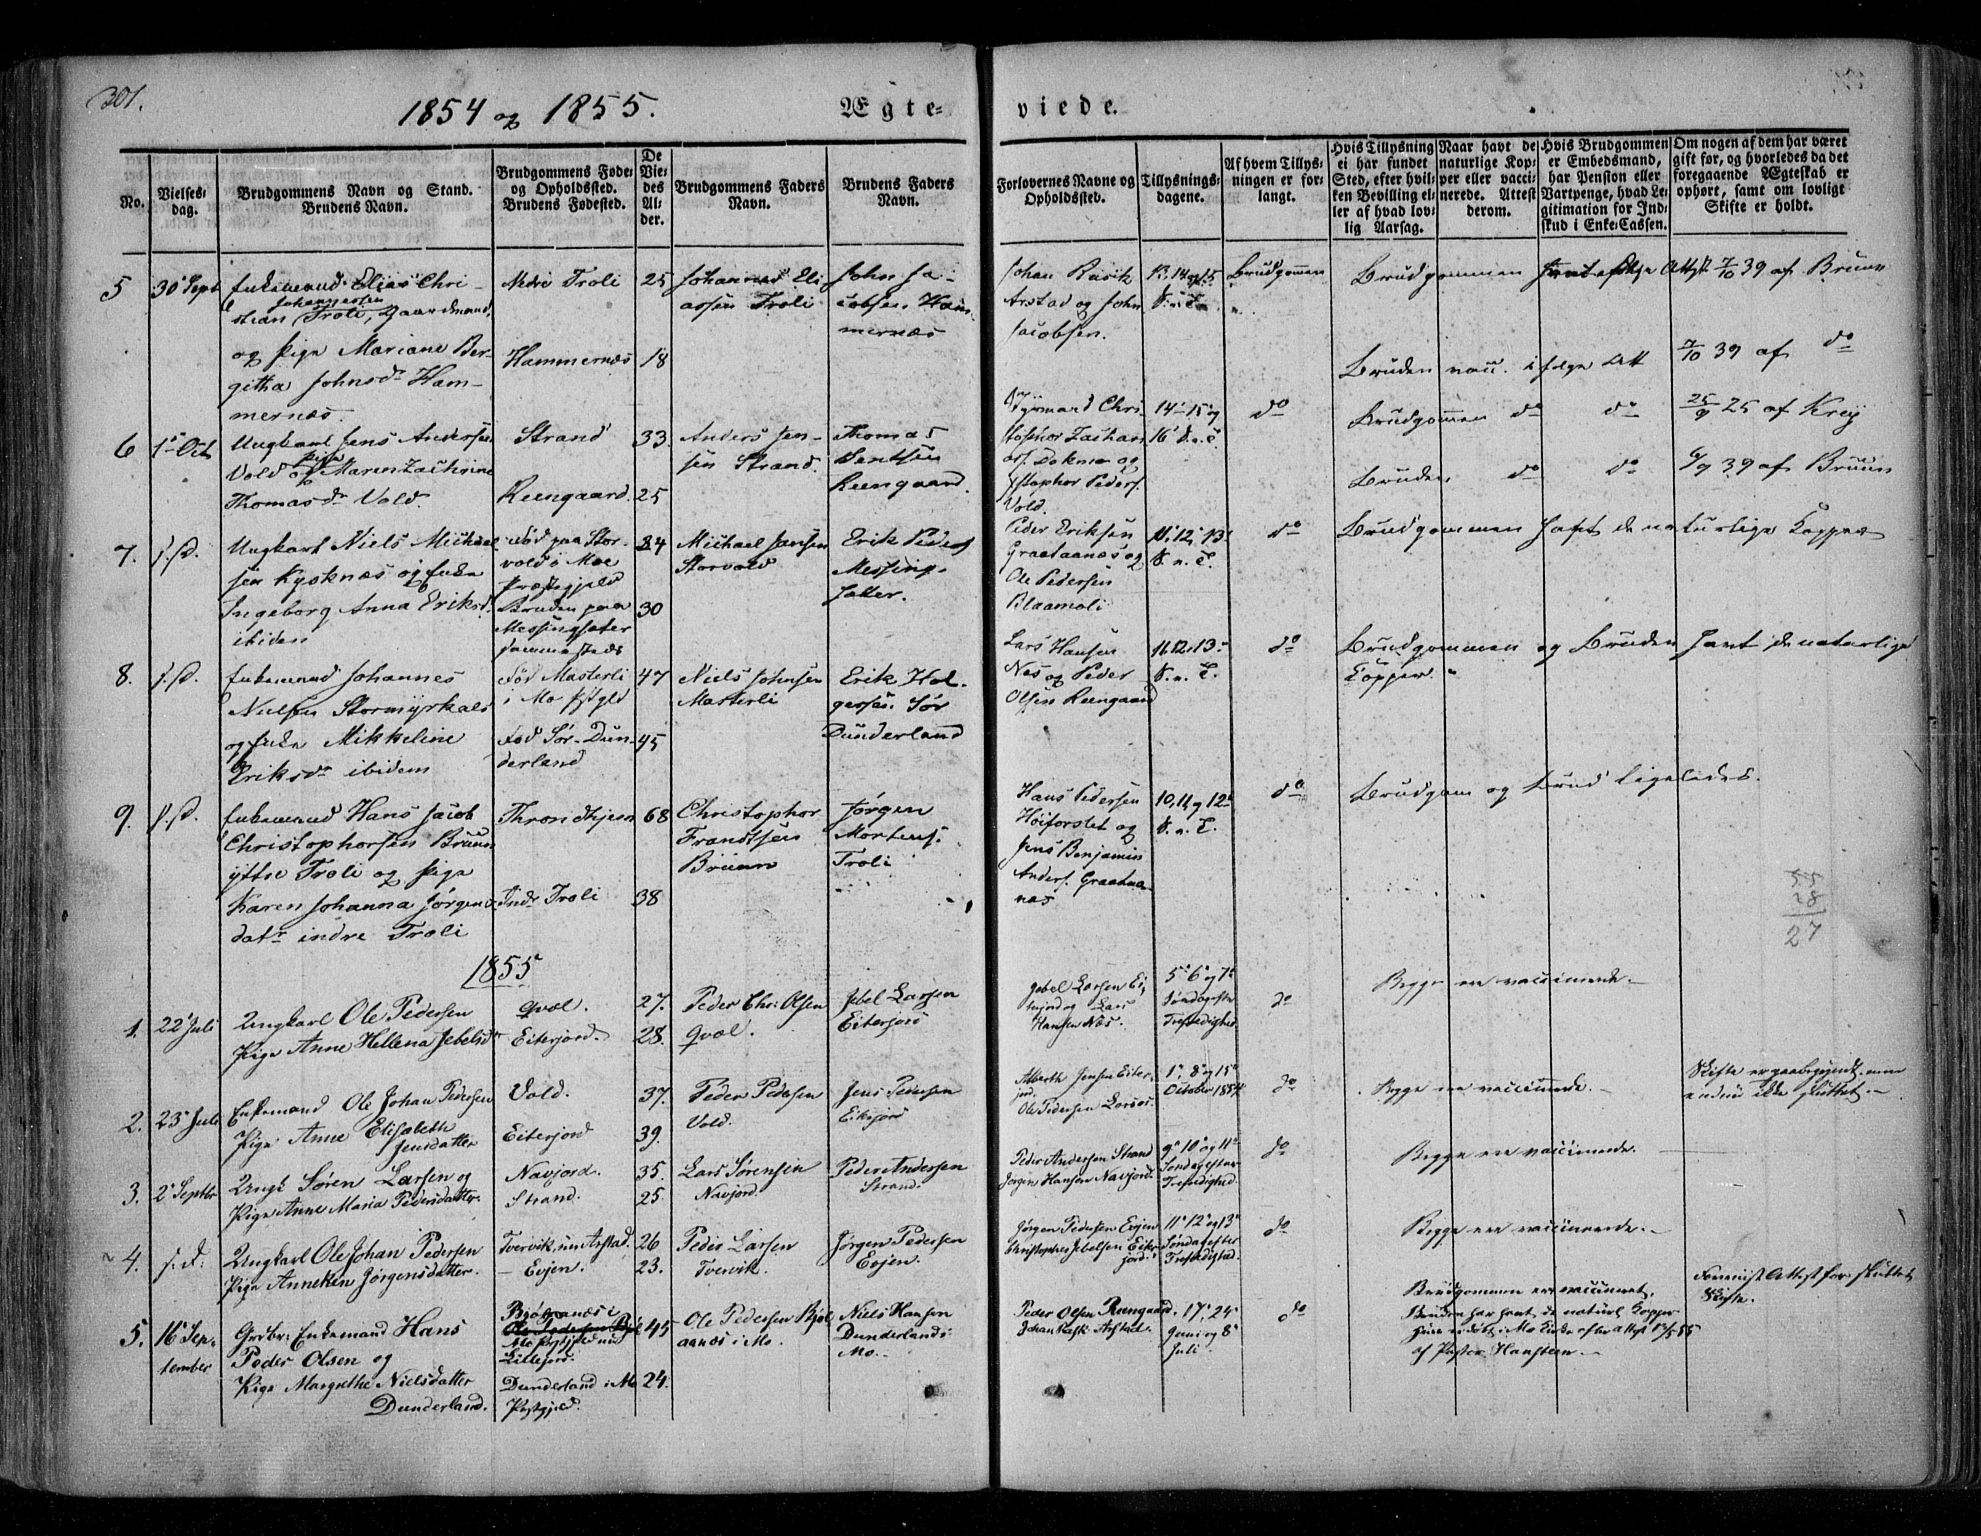 301.
1854 og 1855.
Ægte-
viede.
No.
Vielses-
dag.
Brudgommens Navn og Stand.
Brudens Navn.
Brudgommens Føde-
og Opholdssted.
Brudens Fødested.
De
Vie-
des
Al-
der.
Brudgommens Faders
Navn.
Brudens Faders
Navn.
Forlovernes Navne og
Opholdssted.
Tillysnings-
dagene.
Af hvem Tillys-
ningen er for-
langt.
Hvis Tillysning
ei har fundet
Sted, efter hvil-
ken Bevilling el-
ler af hvad lov-
lig Aarsag.
Naar havt de
naturlige Kop-
per eller vacci-
nerede. Attest
derom.
Hvis Brudgommen
er Embedsmand,
har Pension eller
Vartpenge, hvad Le-
gitimation for Ind-
skud i Enke-Cassen.
Om nogen af dem har været
gift før, og hvorledes da det
foregaaende Ægteskab er
ophørt, samt om lovligt
Skifte er holdt.
5
30 Sept
Enkemand Elias Chri-
Johannesen
stian Troli, Gaardmand,
og Pige Mariane Ber-
githa Johnsdr Ham-
mernæs
Nedre Troli
Hammernæs
25
18
Johannes Eli-
assen Troli
John Ja-
cobsen Ham-
mernæs
Johan Rasik
Arstad og John
Jacobsen.
13, 14 og 15
S. e. T.
Brudgommen
Brudgommen
Attest 7/10 39 af Bruun
Bruden vacc. ifølge Att
7/10 39 af do
6
1 Oct
Ungkarl Jens Andersen
Pige
Vold og Maren Zachrine
Thomasdr Vold.
Strand
Reengaard.
33
25
Anders Jen-
sen Strand.
Thomas
Bentsen
Reengaard
Chri-
stopher Zachari-
og
Peders.
Vold.
14 15 og
16 S. e. T.
do
Brudgommen do do
25/9 25 af
Bruden do do
6/9 39 af Bruun
7.
s. D.
Ungkarl Niels Michael-
sen og Enke
Ingeborg Anna Eriksd.
ibidem
født paa Stor-
vold i Moe
Præstegjeld
Bruden paa
Messingsæter
sammesteds
24
30
Michael Jansen
Storvold
Erik Peders
Messing-
sæter.
Peder Eriksen
Graataanæs og
Ole Pedersen
Blaamoli
11. 12. 13.
S. e. T.
do
Brudgommen havt de naturlige Kopper
8.
s. D.
Enkemand Johannes
Nielsen Stormyrkals
og Enke Mikkeline
Eriksdr ibidem
Fød Masterli
i Mo Pstgld
Fød Sør-Dun-
derland
47
45
Niels Johnsen
Masterli
Erik Hol-
gersen Sør
Dunderland
Lars Hansen
Næs og Peder
Olsen Reengaard
11. 12. 13.
S. e. T.
do
Brudgommen og Bruden havt de naturlige
Kopper.
9.
s. D.
Enkemand Hans Jacob
Christophersen Bruun
yttre Troli og Pige
Karen Johanna Jørgens-
datr indre Troli
Throndhjem
Indr Troli
68
38
Christopher
Frandtsen
Bruun
Jørgen
Mortens.
Troli
Hans Pedersen
Høiforslet og
Jens Benjamin
Anders. Graatna-
næs
10, 11 og 12
S. e. T.
do
Brudgom og Brud ligeledes.
55
28
27
1855
1.
22 Juli
Ungkarl Ole Pedersen
Pige Anne Hellena Jebelsdr
Qvæl.
Eiterjord.
27.
28.
Peder Chr: Olsen
Qvæl.
Jebel Larsen
Eiterjord
Jebel Larsen Ei-
terjord og Lars
Hansen Næs.
5. 6 og 7
Søndag efter
Trefoldighed
do
Begge ere vaccinerede.
2.
23 Juli
Enkemand Ole Johan Pedersen
Pige Anne Elisabeth
Jensdatter
Vold.
Eiterjord
37.
39.
Peder Pedersen
Vold.
Jens Pedersen
Alberth Jensen Eiter-
jord.
Ole Pedersen
1, 8 og 15
October 1854
do
Begge ere vaccinerede.
Skifte er paabegyndt men
endnu ikke sluttet.
3.
2 Septbr
Ungk: Søren Larsen og
Pige Anne Maria Pedersdatter
Navjord.
Strand.
35.
25.
Lars Sørensen
Navjord.
Peder Andersen
Strand.
Peder Andersen Strand
Jørgen Hansen Navjord.
9 10 og 11
Søndag efter
Trefoldighed.
do
Begge ere vaccinerede.
4.
s. d.
Ungkarl Ole Johan Pedersen
Pige Anneken Jørgensdatter.
Tvervik, nu Arstad.
Evjen.
26
23.
Peder Larsen
Tvervik.
Jørgen Pedersen
Evjen.
Jørgen Pedersen Evjen
Christopher Jebelsen Eiter-
jord.
11 12 og 13
Søndag efter
Trefoldighed.
do
Begge ere vaccinerede.
5.
16 Sep-
tember
Grdbr: Enkemand Hans
Peder Olsen og
Pige Margrethe Nielsdatter
Dunderland.
Bjølaanæs i
Mo Pstgjeld nu
Lillejord.
Dunderland i Mo
Pstgjeld.
45
24.
Ole Pedersen Bjøl-
aanæs i Mo.
Niels Hansen
Dunderland i
Mo.
Peder Olsen Reengaard.
Johan Rasik Arstad.
17, 24
Juni og 8
Juli.
do
Brudgommen er vaccineret.
Bruden har havt de naturl. Kopper
af Pastor Hansteen.
Forevist Attest for sluttet
Skifte.